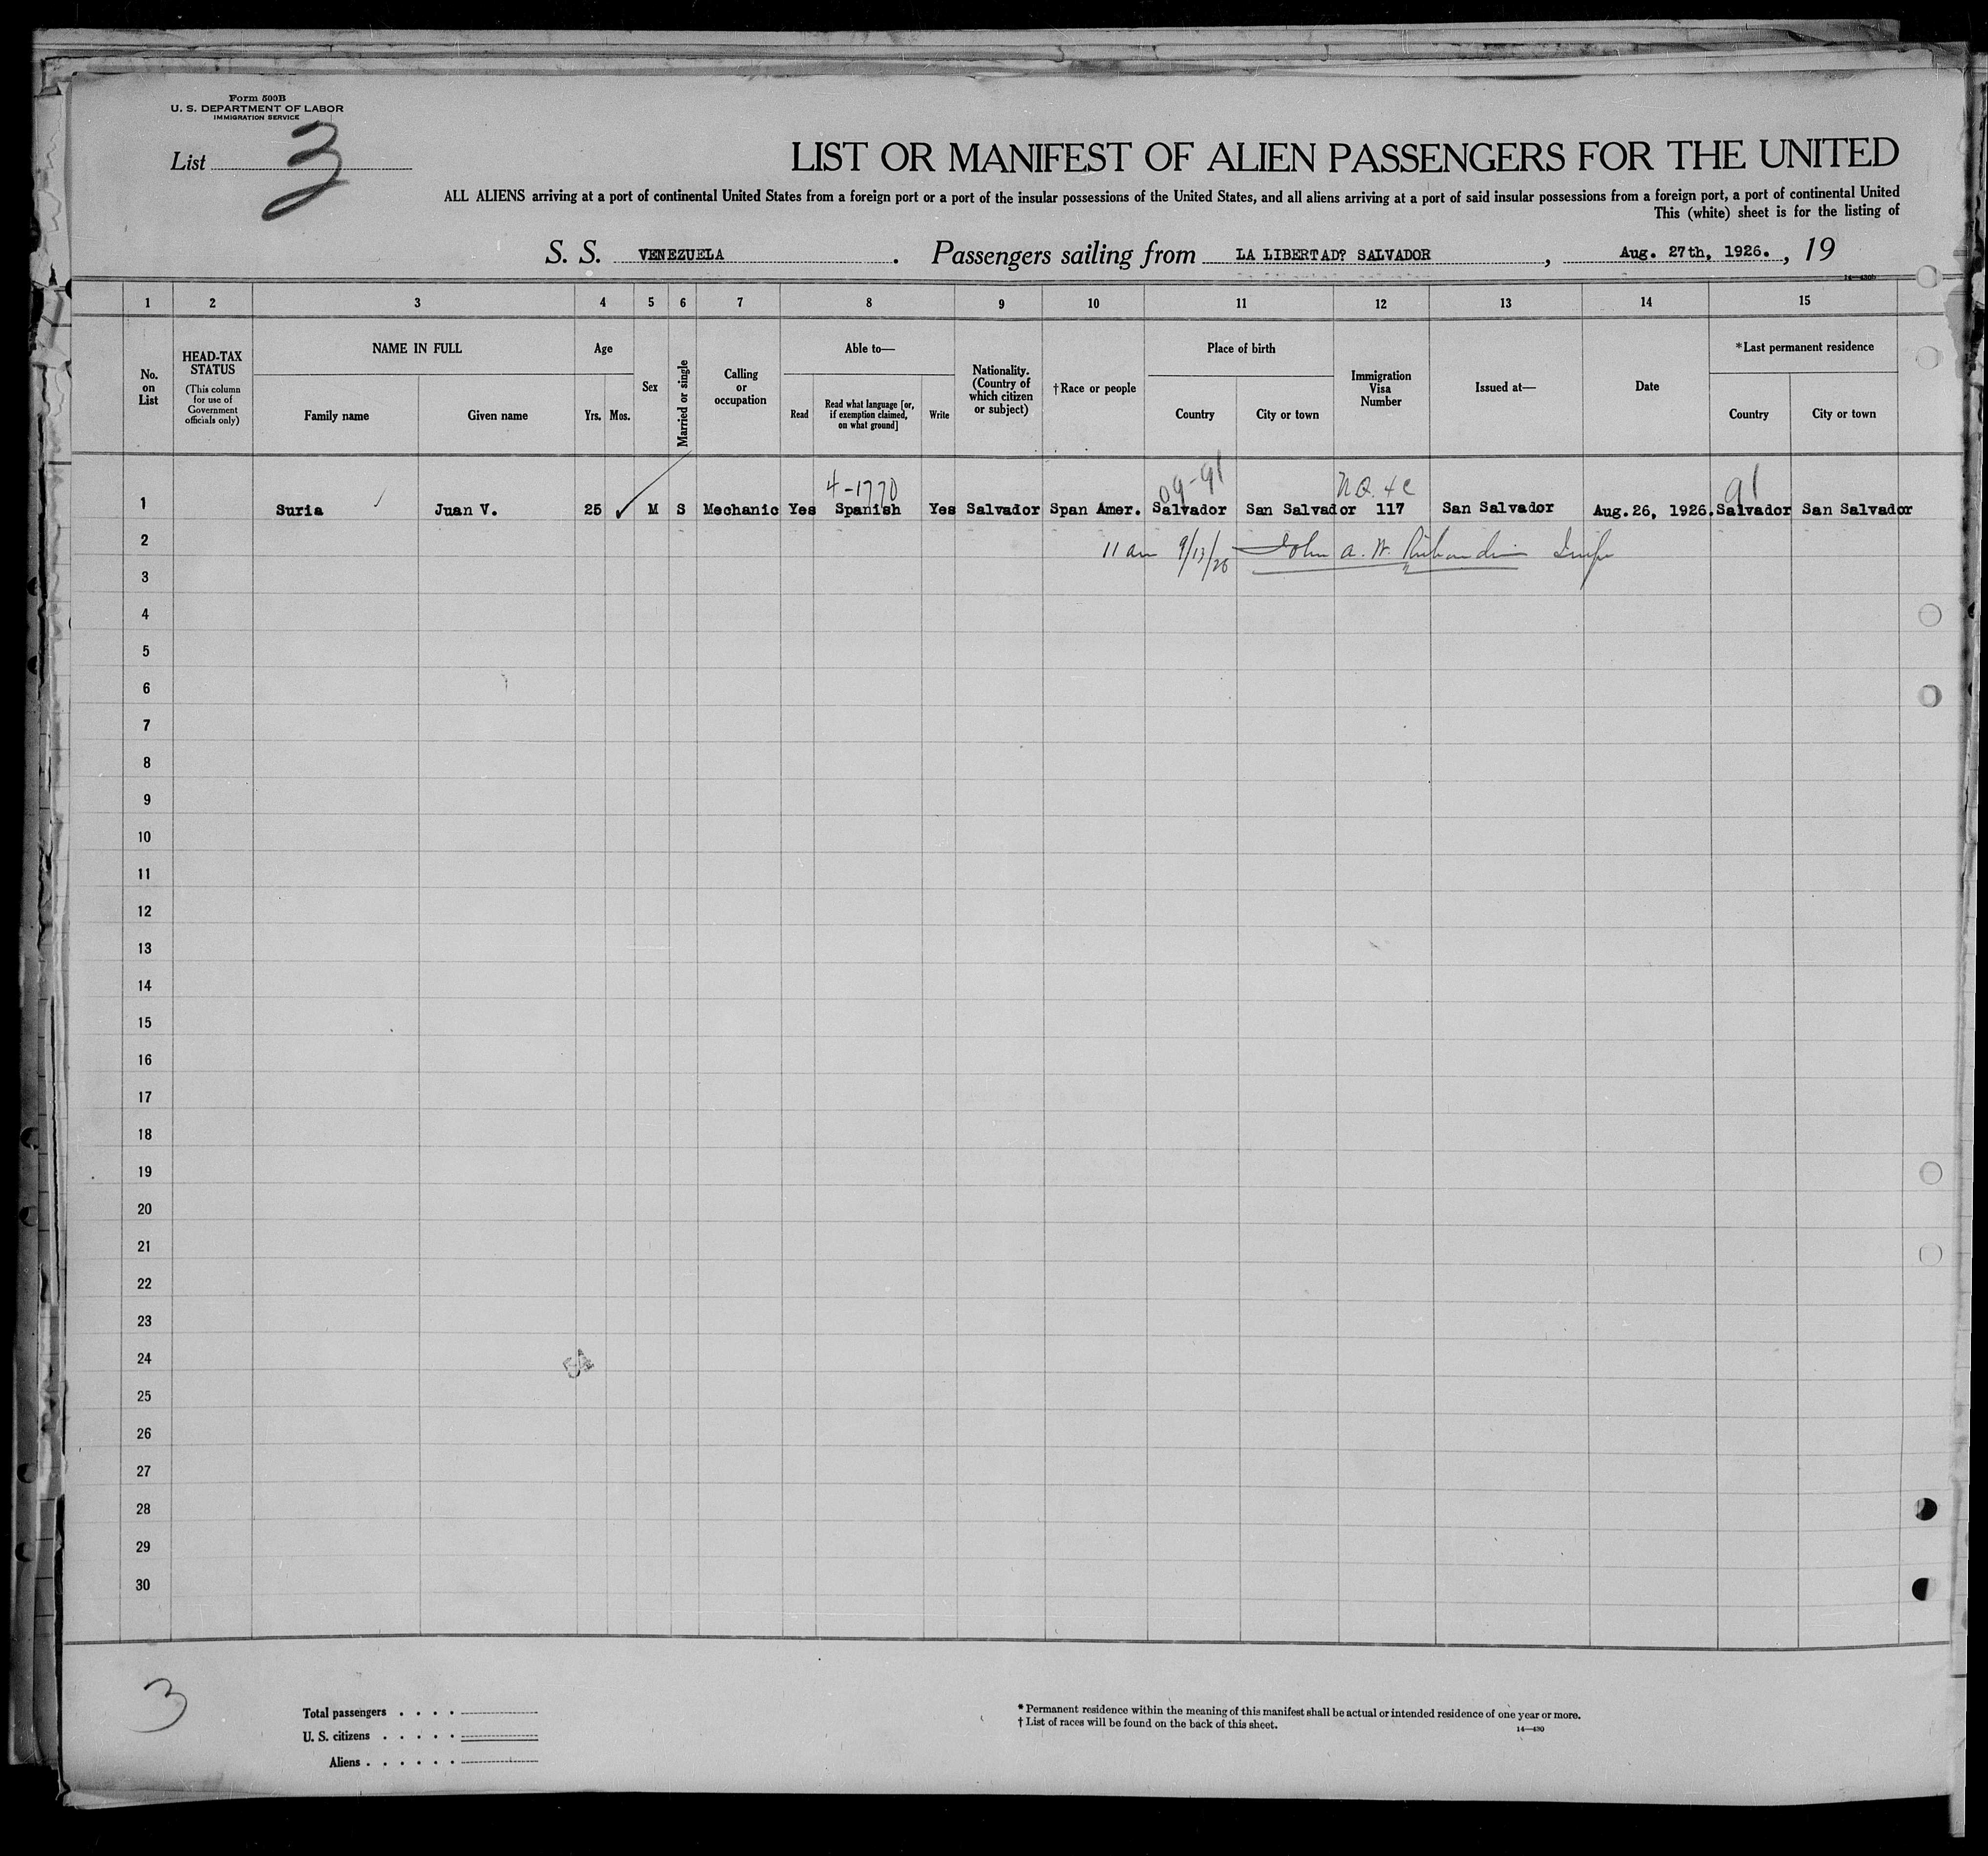 Form 500B
U. S. DEPARTMENT OF LABOR
IMMIGRATION SERVICE
List 3
LIST OR MANIFEST OF ALIEN PASSENGERS FOR THE UNITED
ALL ALIENS arriving at a port of continental United States from a foreign port or a port of the insular possessions of the United States, and all aliens arriving at a port of said insular possessions from a foreign port, a port of continental United
This (white) sheet is for the listing of
S. S. VENEZUELA . Passengers sailing from LA LIBERTAD? SALVADOR , Aug. 27th, 1926. , 19
14—430b
1 2 3 4 5 6 7 8 9 10 11 12 13 14 15
No. on List
HEAD-TAX STATUS
(This column for use of Government officials only)
NAME IN FULL
Family name
Given name
Age
Yrs. Mos.
Sex
Married or single
Calling or occupation
Able to—
Read
Read what language [or, if exemption claimed, on what ground]
Write
Nationality. (Country of which citizen or subject)
†Race or people
Place of birth
Country
City or town
Immigration Visa Number
Issued at—
Date
*Last permanent residence
Country
City or town
4-1770 09-91 N.Q. 4c 91
1 Suria Juan V. 25 ✓ M S Mechanic Yes Spanish Yes Salvador Span Amer. Salvador San Salvador 117 San Salvador Aug.26, 1926. Salvador San Salvador
2 11 am 9/13/26 John A. W.
3
4
5
6
7
8
9
10
11
12
13
14
15
16
17
18
19
20
21
22
23
24
25
26
27
28
29
30
3
Total passengers . . . .
U. S. citizens . . . . .
Aliens . . . . . .
* Permanent residence within the meaning of this manifest shall be actual or intended residence of one year or more.
† List of races will be found on the back of this sheet.
14—430